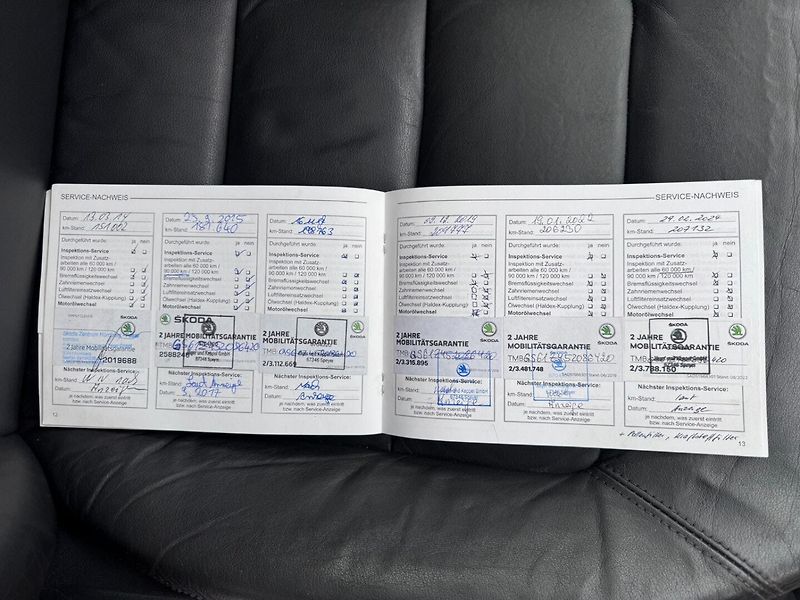 SERVICE-NACHWEIS
Datum: 13.03.14
km-Stand: 151002
Durchgeführt wurde: ja nein
Inspektions-Service
Inspektion mit Zusatz-
arbeiten alle 60 000 km /
90 000 km / 120 000 km
Bremsflüssigkeitswechsel
Zahnriemenwechsel
Luftfiltereinsatzwechsel
Ölwechsel (Haldex-Kupplung)
Motorölwechsel
ŠKODA
2 Jahre Mobilitätsgarantie
2019668
Nächster Inspektions-Service:
km-Stand:
Datum: Anzeige
je nachdem, was zuerst eintritt
bzw. nach Service-Anzeige
12
Datum: 23.9.2015
km-Stand: 187.640
Durchgeführt wurde: ja nein
Inspektions-Service
Inspektion mit Zusatz-
arbeiten alle 60 000 km /
90 000 km / 120 000 km
Bremsflüssigkeitswechsel
Zahnriemenwechsel
Luftfiltereinsatzwechsel
Ölwechsel (Haldex-Kupplung)
Motorölwechsel
ŠKODA
2 JAHRE
MOBILITÄTSGARANTIE
Nächster Inspektions-Service:
km-Stand: Laut Anzeige
Datum: 9.2017
je nachdem, was zuerst eintritt
bzw. nach Service-Anzeige
Datum:
km-Stand: 198763
Durchgeführt wurde: ja nein
Inspektions-Service
Inspektion mit Zusatz-
arbeiten alle 60 000 km /
90 000 km / 120 000 km
Bremsflüssigkeitswechsel
Zahnriemenwechsel
Luftfiltereinsatzwechsel
Ölwechsel (Haldex-Kupplung)
Motorölwechsel
ŠKODA
2 JAHRE
MOBILITÄTSGARANTIE
67346 Speyer
Nächster Inspektions-Service:
km-Stand: nach
Datum: Anzeige
je nachdem, was zuerst eintritt
bzw. nach Service-Anzeige
SERVICE-NACHWEIS
Datum:
km-Stand: 201777
Durchgeführt wurde: ja nein
Inspektions-Service
Inspektion mit Zusatz-
arbeiten alle 60 000 km /
90 000 km / 120 000 km
Bremsflüssigkeitswechsel
Zahnriemenwechsel
Luftfiltereinsatzwechsel
Ölwechsel (Haldex-Kupplung)
Motorölwechsel
ŠKODA
2 JAHRE
MOBILITÄTSGARANTIE
2/3.315.895
Nächster Inspektions-Service:
km-Stand:
Datum: Anzeige
je nachdem, was zuerst eintritt
bzw. nach Service-Anzeige
Datum: 19.01.2022
km-Stand: 206230
Durchgeführt wurde: ja nein
Inspektions-Service
Inspektion mit Zusatz-
arbeiten alle 60 000 km /
90 000 km / 120 000 km
Bremsflüssigkeitswechsel
Zahnriemenwechsel
Luftfiltereinsatzwechsel
Ölwechsel (Haldex-Kupplung)
Motorölwechsel
ŠKODA
2 JAHRE
MOBILITÄTSGARANTIE
2/3.481.748
Nächster Inspektions-Service:
km-Stand:
Datum: Anzeige
je nachdem, was zuerst eintritt
bzw. nach Service-Anzeige
Datum: 29.02.2024
km-Stand: 207132
Durchgeführt wurde: ja nein
Inspektions-Service
Inspektion mit Zusatz-
arbeiten alle 60 000 km /
90 000 km / 120 000 km
Bremsflüssigkeitswechsel
Zahnriemenwechsel
Luftfiltereinsatzwechsel
Ölwechsel (Haldex-Kupplung)
Motorölwechsel
ŠKODA
2 JAHRE
MOBILITÄTSGARANTIE
67346 Speyer
2/3.788.160
Nächster Inspektions-Service:
km-Stand: laut
Datum: Anzeige
je nachdem, was zuerst eintritt
bzw. nach Service-Anzeige
+ Pollenfilter, Kraftstofffilter
13